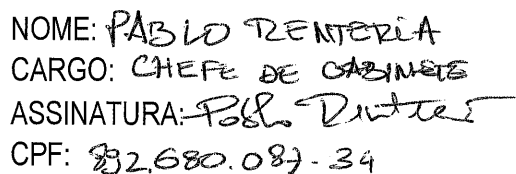 NOME: PABLO RENTERIA
CARGO: CHEFE DE GABINETE
ASSINATURA: Pablo Renteria
CPF: 892.680.087-34